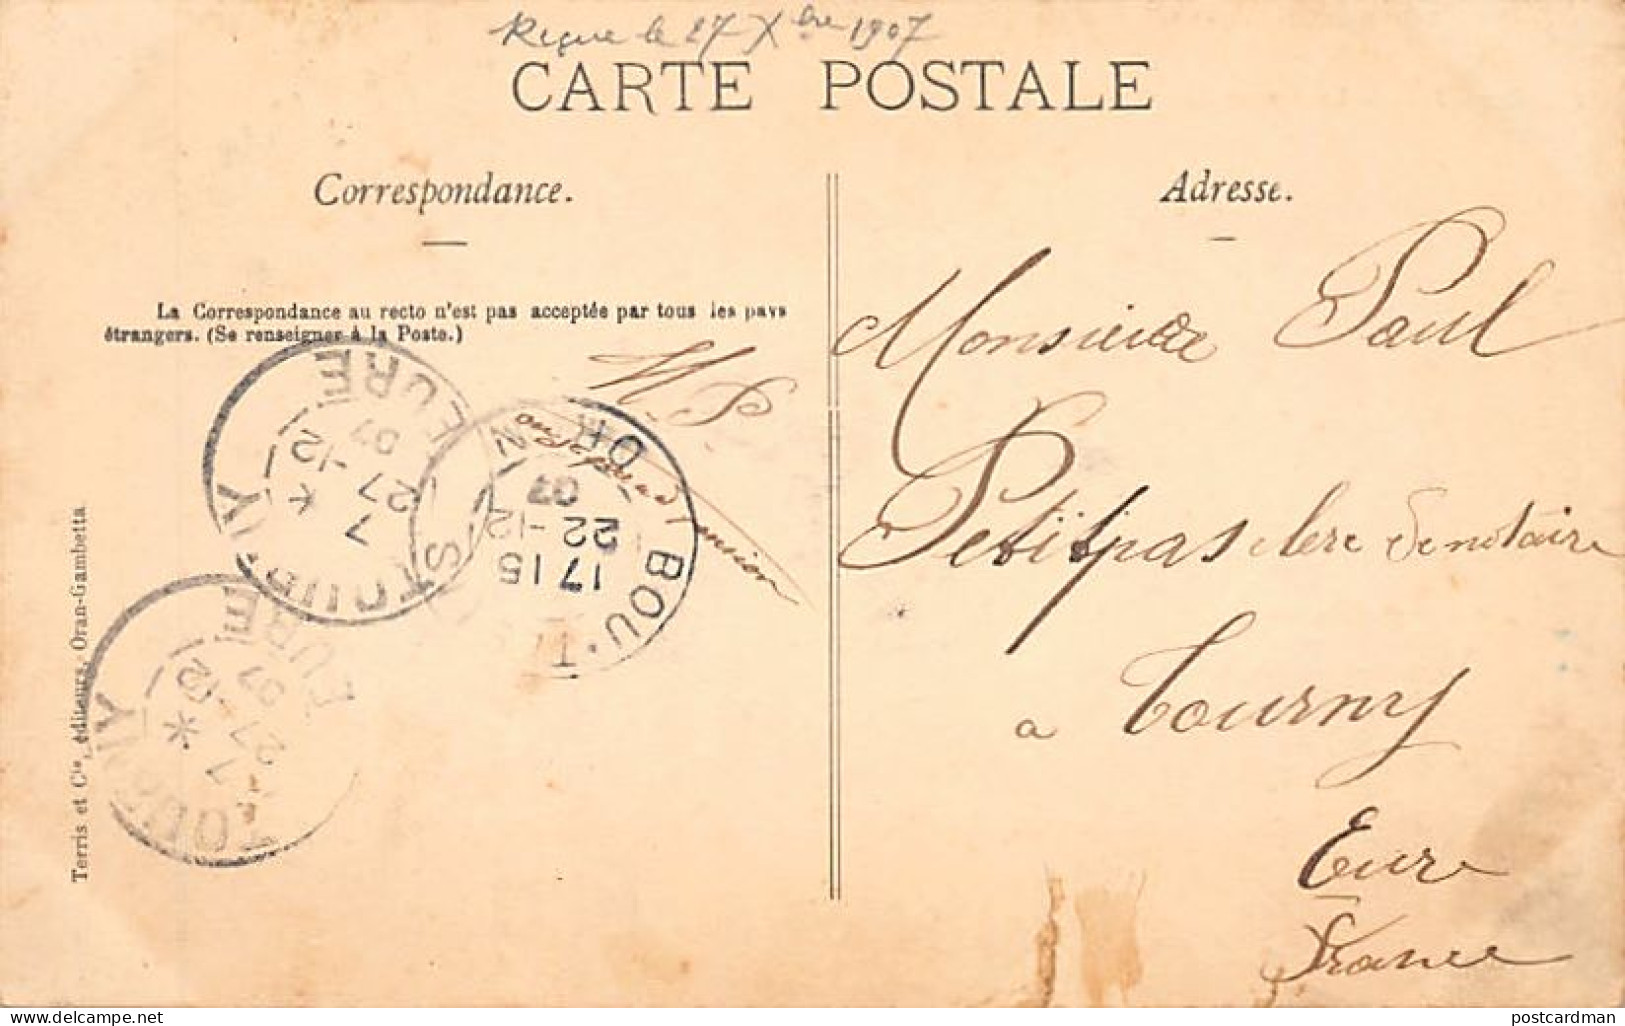 Reçue le 27 Xbre 1907
CARTE POSTALE
Correspondance.
Adresse.
La Correspondance au recto n'est pas acceptée par tous les pays
étrangers. (Se renseigner à la Poste.)
Monsieur Paul
Petitpas clerc de notaire
a Tourny
Eure
France
TOURNY
EURE
7
27-12
07
BOU-T
ORAN
17 15
22-12
07
TOURNY
EURE
7
27-12
07
Terris et Cie, éditeurs, Oran-Gambetta
postcardman
www.delcampe.net